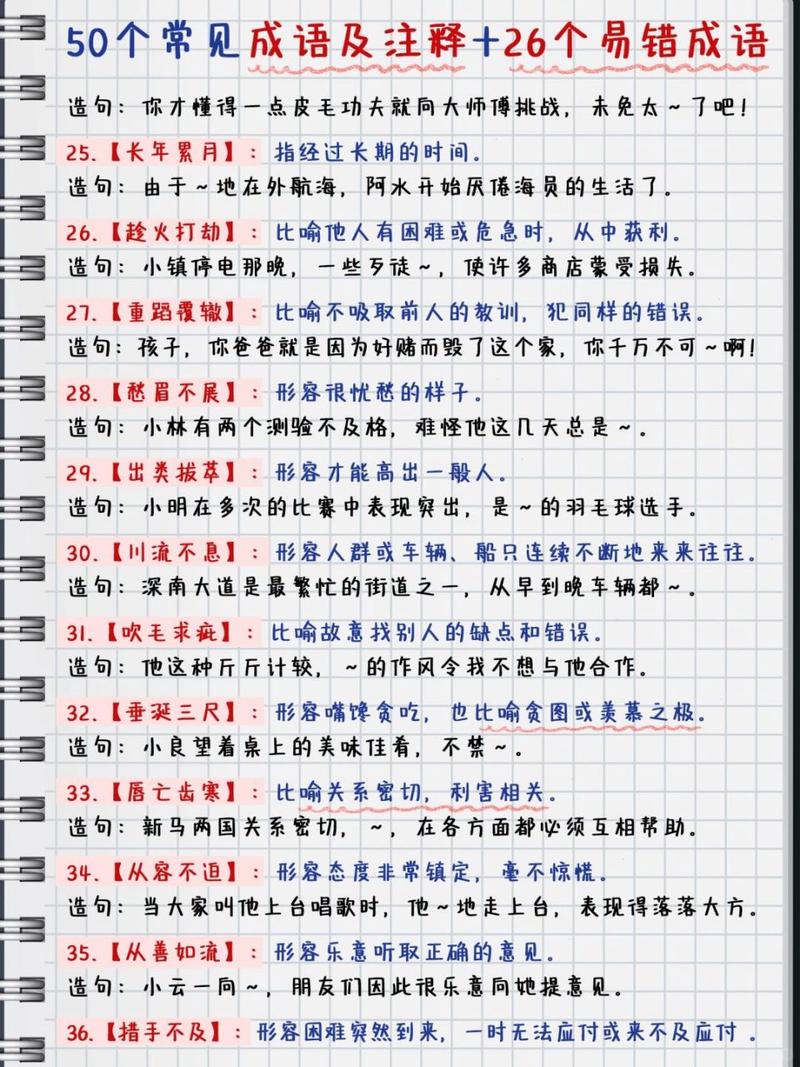 50个常见成语及注释+26个易错成语
造句：你才懂得一点皮毛功夫就向大师傅挑战，未免太~了吧！
25.【长年累月】：指经过长期的时间。
造句：由于~地在外航海，阿水开始厌倦海员的生活了。
26.【趁火打劫】：比喻他人有困难或危急时，从中获利。
造句：小镇停电那晚，一些歹徒~，使许多商店蒙受损失。
27.【重蹈覆辙】：比喻不吸取前人的教训，犯同样的错误。
造句：孩子，你爸爸就是因为好赌而毁了这个家，你千万不可~啊！
28.【愁眉不展】：形容很忧愁的样子。
造句：小林有两个测验不及格，难怪他这几天总是~。
29.【出类拔萃】：形容才能高出一般人。
造句：小明在多次的比赛中表现突出，是~的羽毛球选手。
30.【川流不息】：形容人群或车辆、船只连续不断地来来往往。
造句：深南大道是最繁忙的街道之一，从早到晚车辆都~。
31.【吹毛求疵】：比喻故意找别人的缺点和错误。
造句：他这种斤斤计较，~的作风令我不想与他合作。
32.【垂涎三尺】：形容嘴馋贪吃，也比喻贪图或羡慕之极。
造句：小良望着桌上的美味佳肴，不禁~。
33.【唇亡齿寒】：比喻关系密切，利害相关。
造句：新马两国关系密切，~，在各方面都必须互相帮助。
34.【从容不迫】：形容态度非常镇定，毫不惊慌。
造句：当大家叫他上台唱歌时，他~地走上台，表现得落落大方。
35.【从善如流】：形容乐意听取正确的意见。
造句：小云一向~，朋友们因此很乐意向她提意见。
36.【措手不及】：形容困难突然到来，一时无法应付或来不及应付。